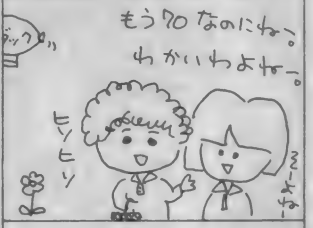 もう70なのにねー。
わかいわよねー。
ヒソヒソ
そーよねー